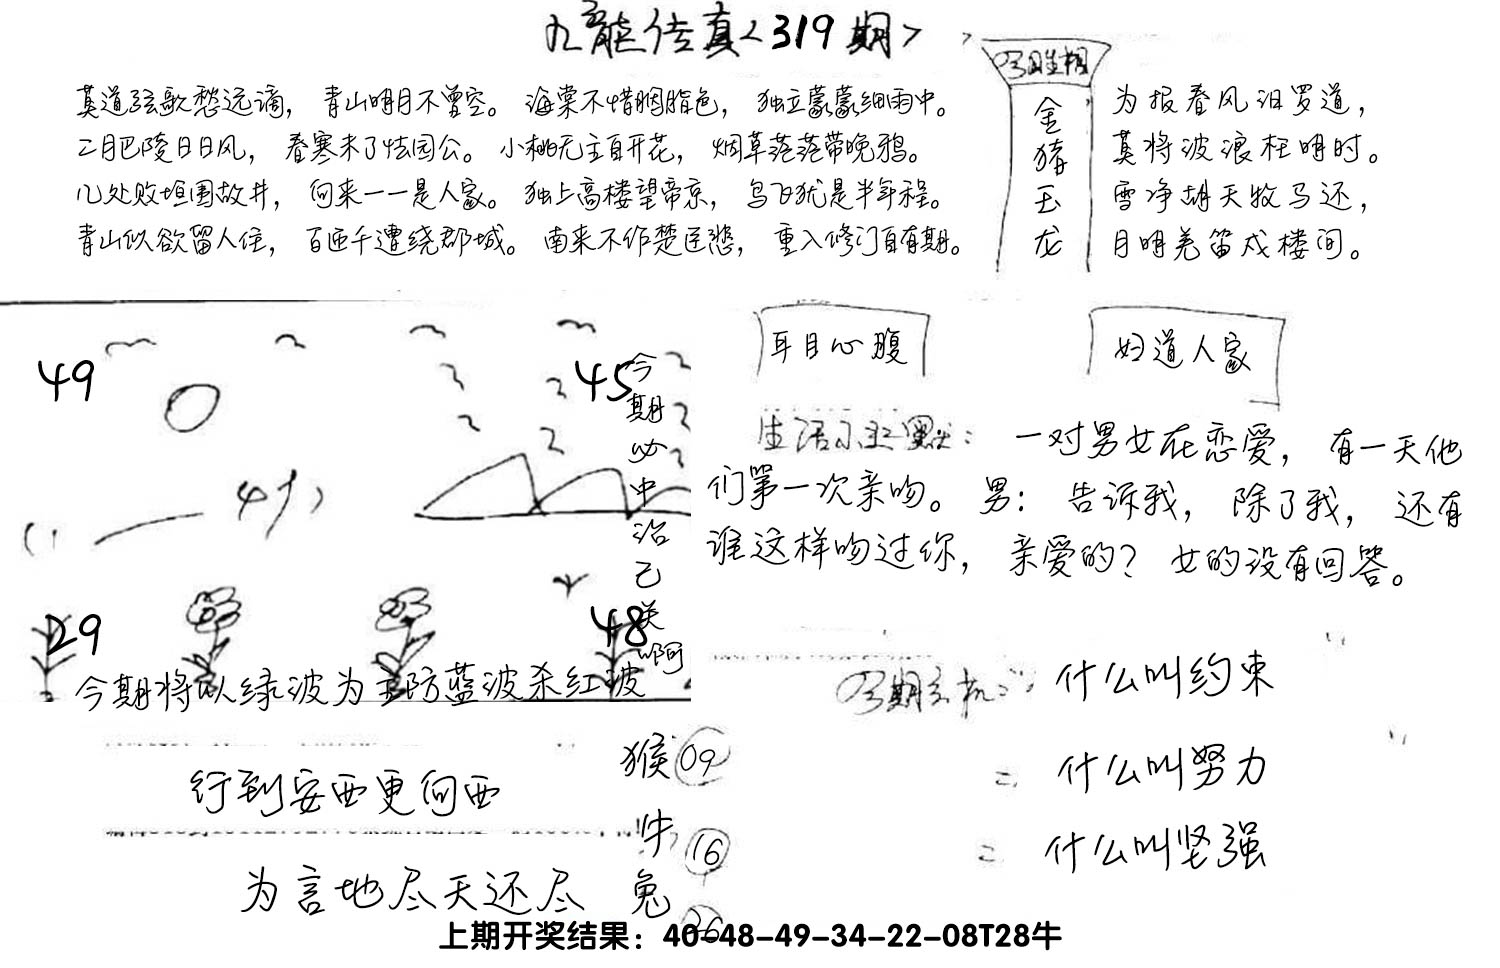 九龍传真<319期>
莫道弦歌愁远谪，青山明月不曾空。海棠不惜胭脂色，独立蒙蒙细雨中。
二月巴陵日日风，春寒未了怯园公。小桃无主自开花，烟草茫茫带晚鸦。
几处败垣围故井，向来一一是人家。独上高楼望帝京，鸟飞犹是半年程。
青山似欲留人住，百匝千遭绕郡城。南来不作楚臣悲，重入修门自有期。
金猪玉龙
为报春风汨罗道，
莫将波浪枉明时。
雪净胡天牧马还，
月明羌笛戍楼间。
49
45
29
48
今期必中治己送啊
今期将以绿波为主防蓝波杀红波
耳目心腹
妇道人家
一对男女在恋爱，有一天他
们第一次亲吻。男：告诉我，除了我，还有
谁这样吻过你，亲爱的？女的没有回答。
什么叫约束
什么叫努力
什么叫坚强
行到安西更向西
为言地尽天还尽
猴 09
牛 16
兔 26
上期开奖结果：40-48-49-34-22-08T28牛